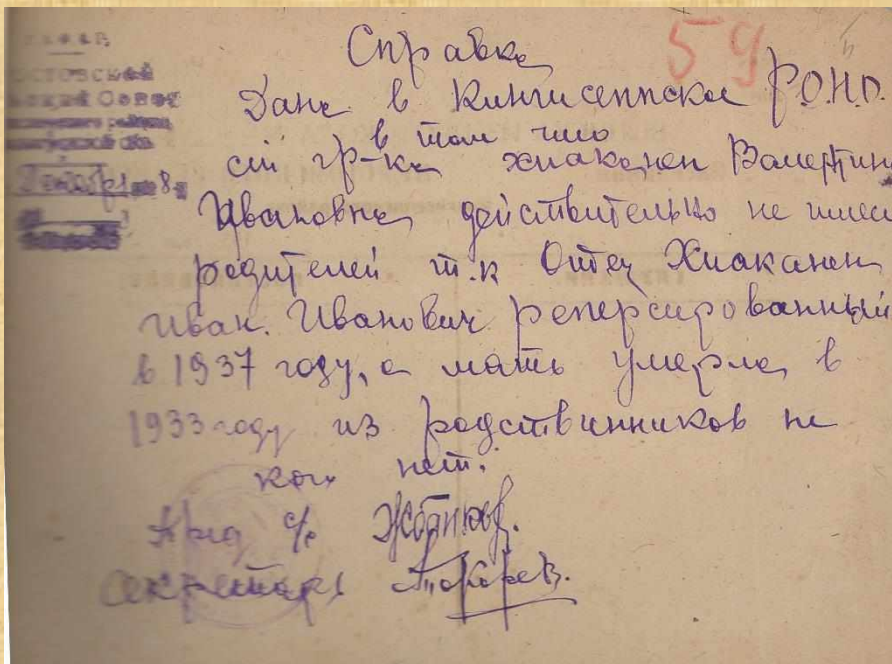 59
Справка
Дана в Кингисеппское Р.О.Н.О.
в том что
гр-ка Хиаканен Валентин
Ивановна действительно не имее
родителей т.к Отец Хиаканен
Иван. Иванович реперсированный
в 1937 году, а мать умерла в
1933 году из родственников не
кого нет.
Пред с/с Жбанков.
Секретарь Токарев.